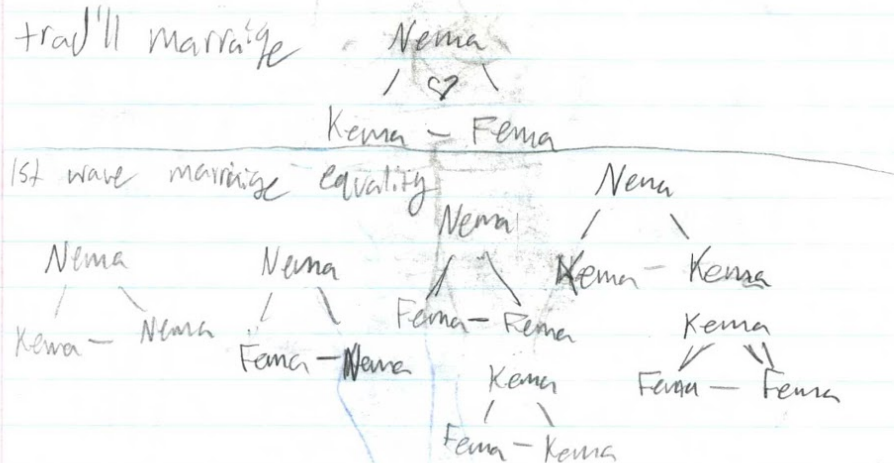 trad'll marraige
Nema
♡
Kema – Fema
1st wave marriaige equality
Nema
Kema – Nema
Nema
Fema – Nema
Nema
Fema – Fema
Nema
Kema – Kema
Kema
Fema – Kema
Kema
Fema – Fema